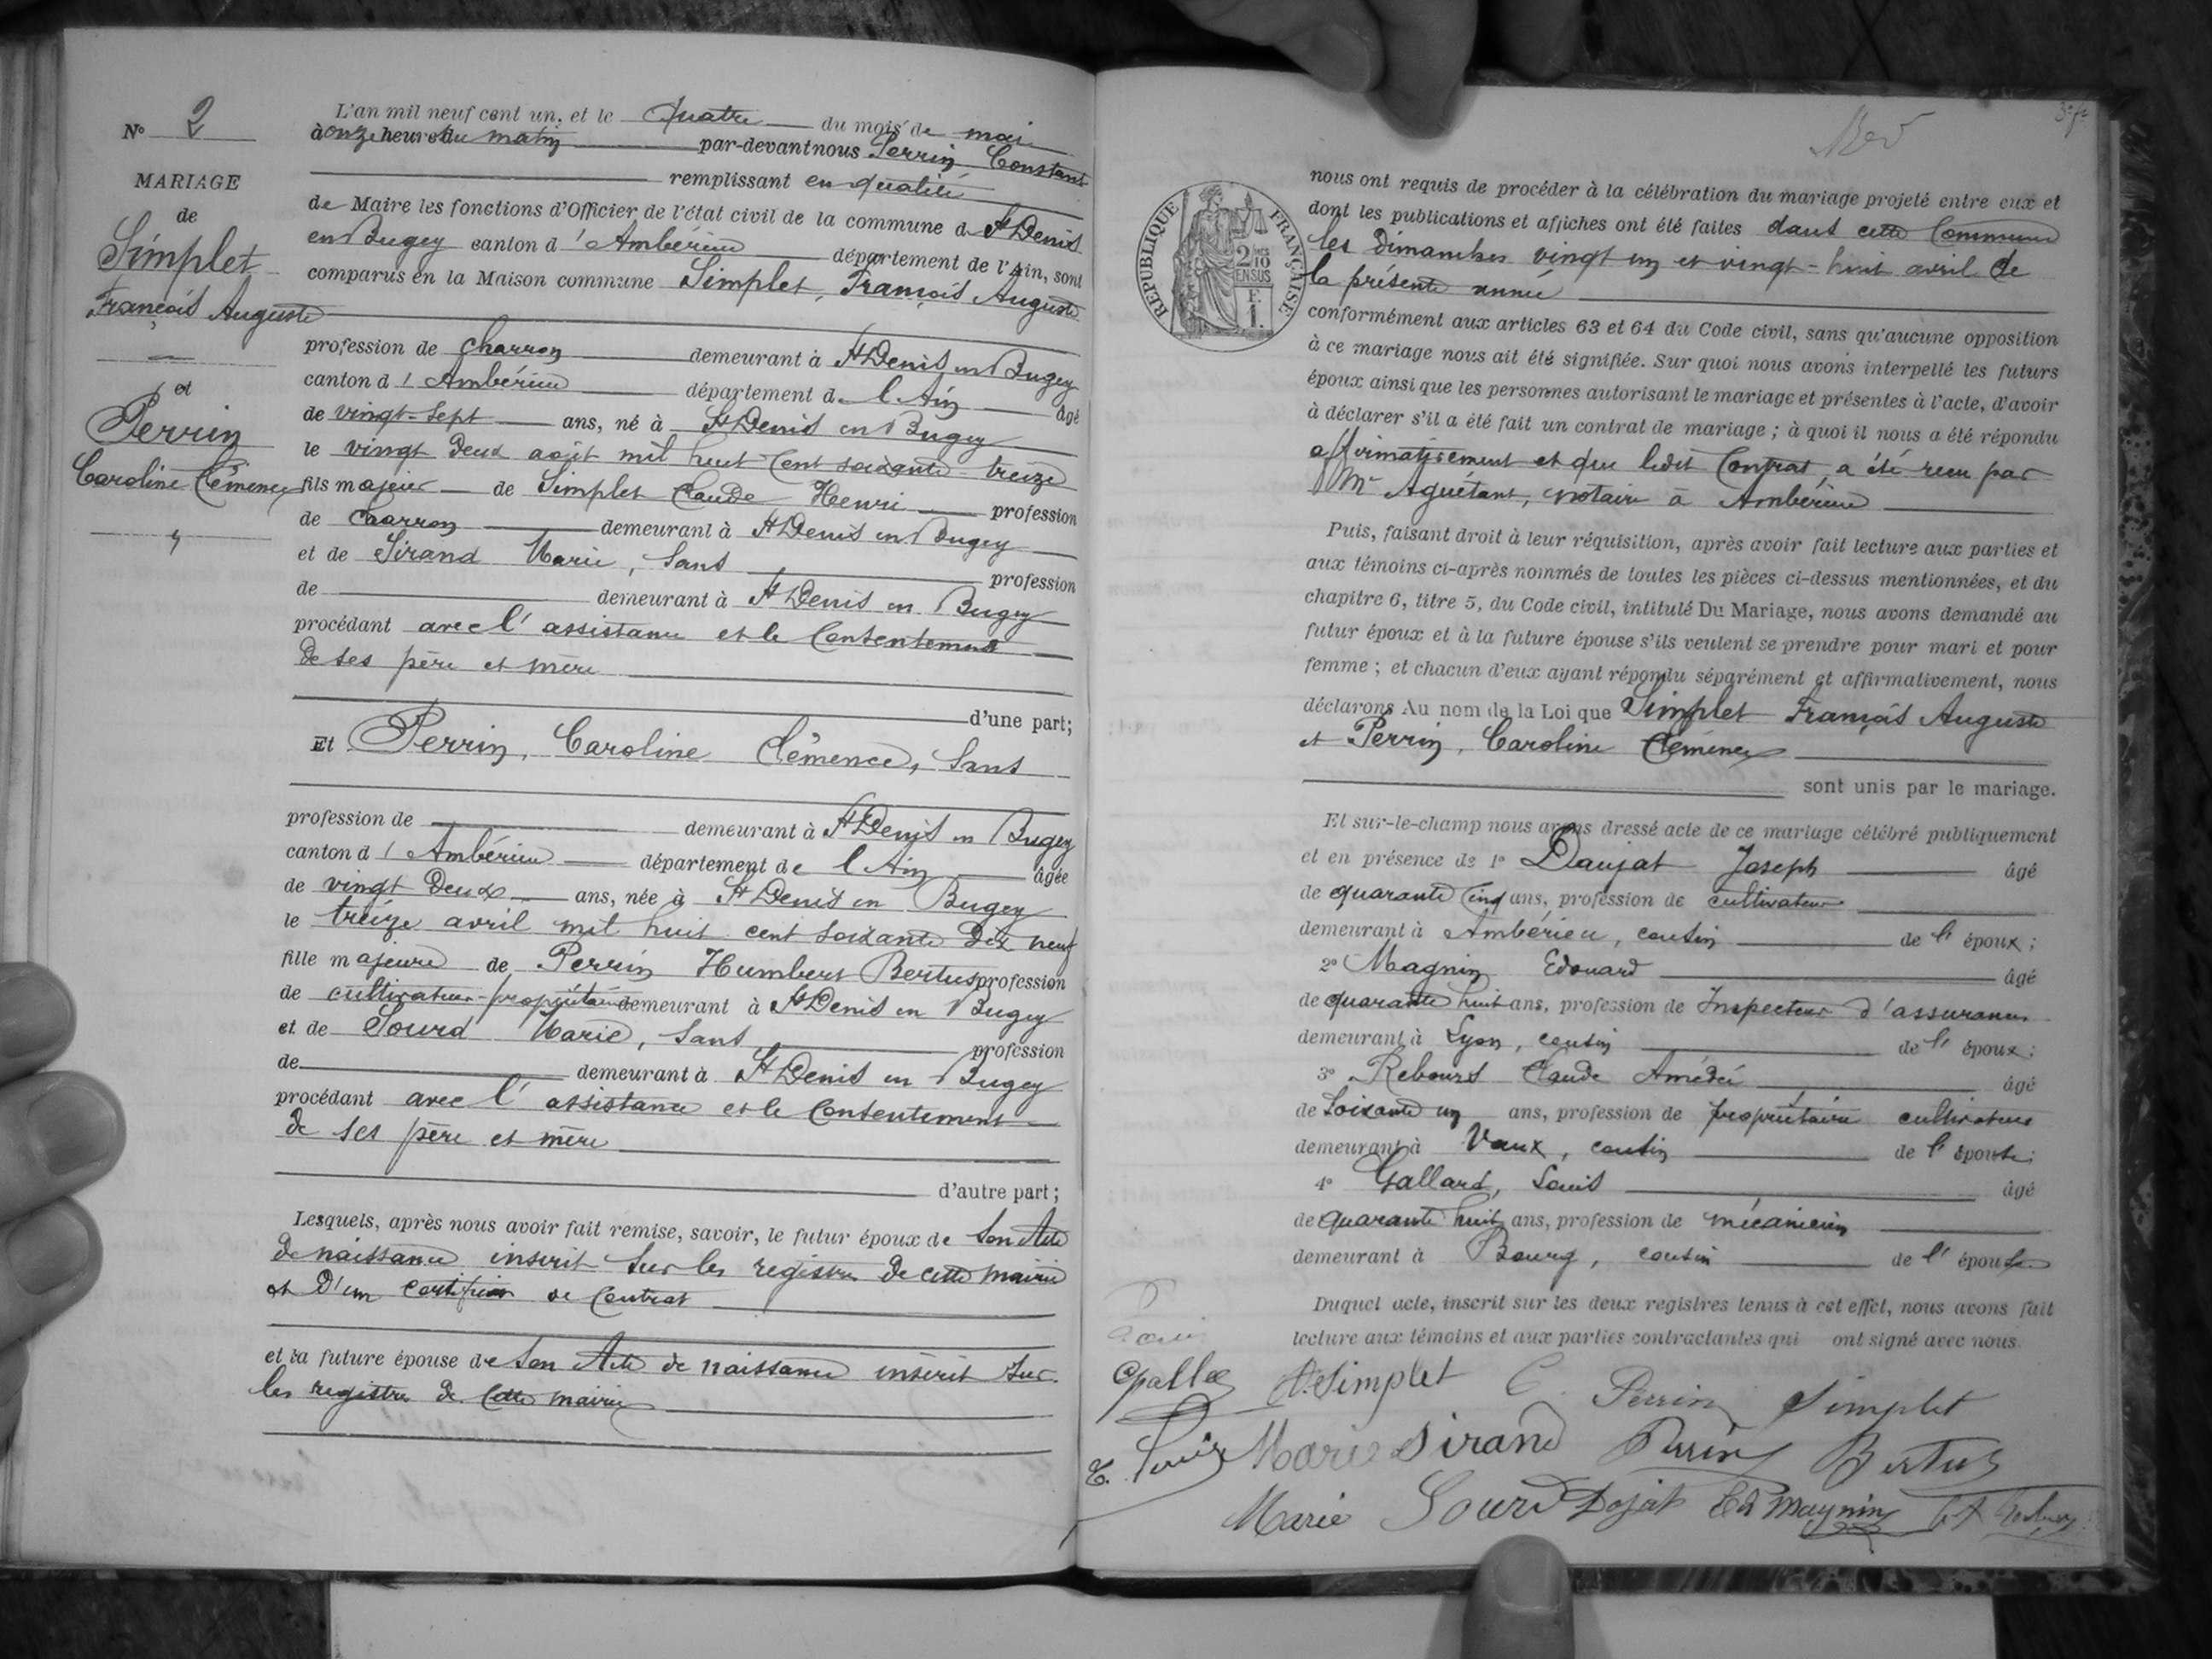 N° 2
MARIAGE
de
Simplet
François Auguste
et
Perrin
Caroline Clémence
L'an mil neuf cent un, et le quatre du mois de mai
à onze heures du matin par-devant nous Perrin Constant
remplissant en qualité
de Maire les fonctions d'Officier de l'état civil de la commune de St Denis
en Bugey canton d'Ambérieu département de l'Ain, sont
comparus en la Maison commune Simplet, François Auguste
profession de charron demeurant à St Denis en Bugey
canton d'Ambérieu département de l'Ain âgé
de vingt-sept ans, né à St Denis en Bugey
le vingt deux août mil huit cent soixante treize
fils majeur de Simplet Claude Henri profession
de charron demeurant à St Denis en Bugey
et de Sirand Marie, sans profession
de demeurant à St Denis en Bugey
procédant avec l'assistance et le consentement
de ses père et mère
d'une part;
Et Perrin, Caroline Clémence, sans
profession de demeurant à St Denis en Bugey
canton d'Ambérieu département de l'Ain âgée
de vingt deux ans, née à St Denis en Bugey
le treize avril mil huit cent soixante dix neuf
fille majeure de Perrin Humbert Bertus profession
de cultivateur-propriétaire demeurant à St Denis en Bugey
et de Sourd Marie, sans profession
de demeurant à St Denis en Bugey
procédant avec l'assistance et le consentement
de ses père et mère
d'autre part;
Lesquels, après nous avoir fait remise, savoir, le futur époux de son Acte
de naissance inscrit sur les registres de cette mairie
et d'un certificat de contrat
et la future épouse de son Acte de naissance inscrit sur
les registres de cette mairie
3e f
REPUBLIQUE FRANÇAISE
2/10 EN SUS
1 F.
nous ont requis de procéder à la célébration du mariage projeté entre eux et
dont les publications et affiches ont été faites dans cette Commune
les dimanches vingt un et vingt-huit avril de
la présente année
conformément aux articles 63 et 64 du Code civil, sans qu'aucune opposition
à ce mariage nous ait été signifiée. Sur quoi nous avons interpellé les futurs
époux ainsi que les personnes autorisant le mariage et présentes à l'acte, d'avoir
à déclarer s'il a été fait un contrat de mariage; à quoi il nous a été répondu
affirmativement et que ledit Contrat a été reçu par
Me Aguétant, notaire à Ambérieu
Puis, faisant droit à leur réquisition, après avoir fait lecture aux parties et
aux témoins ci-après nommés de toutes les pièces ci-dessus mentionnées, et du
chapitre 6, titre 5, du Code civil, intitulé Du Mariage, nous avons demandé au
futur époux et à la future épouse s'ils veulent se prendre pour mari et pour
femme; et chacun d'eux ayant répondu séparément et affirmativement, nous
déclarons Au nom de la Loi que Simplet François Auguste
et Perrin, Caroline Clémence
sont unis par le mariage.
Et sur-le-champ nous avons dressé acte de ce mariage célébré publiquement
et en présence de 1° Daujat Joseph âgé
de quarante cinq ans, profession de cultivateur
demeurant à Ambérieu, cousin de l'époux;
2° Magnin Edouard âgé
de quarante huit ans, profession de Inspecteur d'assurances
demeurant à Lyon, cousin de l'époux;
3° Rebours Claude Amédée âgé
de soixante un ans, profession de propriétaire cultivateur
demeurant à Vaux, cousin de l'épouse;
4° Gallard, Louis âgé
de quarante huit ans, profession de mécanicien
demeurant à Bourg, cousin de l'épouse
Duquel acte, inscrit sur les deux registres tenus à cet effet, nous avons fait
lecture aux témoins et aux parties contractantes qui ont signé avec nous.
A. Simplet C. Perrin Simplet
Marie Sirand Perrin Bertus
Marie Sourd Dojat Ed Magnin